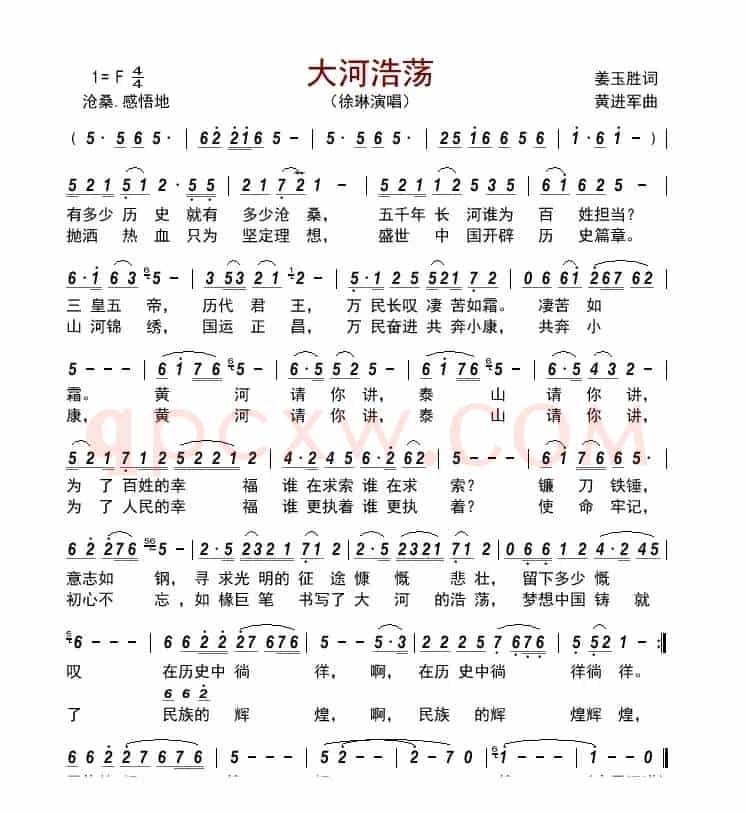 大河浩荡
1= F 4/4
姜玉胜词
沧桑.感悟地
（徐琳演唱）
黄进军曲
( 5· 5 6 5· | 6 2 2 1 6 5 - | 5· 5 6 5· | 2 5 1 6 6 5 6 | 1· 6 1 - | )
5 2 1 5 1 2· 5 5 | 2 1 7 2 1 - | 5 2 2 1 1 2 5 3 5 | 6 1 6 2 5 - |
有多少 历 史 就有 多少沧 桑， 五千年 长 河谁为 百 姓担当？
抛洒 热 血 只为 坚定理 想， 盛世 中 国开辟 历 史篇章。
6· 1 6 3 6 5 - | 3 5 3 2 1 1 2 - | 5· 1 2 5 5 2 2 1 5 | 0 6 6 6 1 2 6 7 6 2 |
三 皇五 帝， 历代 君 王， 万 民长叹 凄 苦如霜。 凄苦 如
山 河锦 绣， 国运 正 昌， 万 民奋进 共 奔小康， 共奔 小
5 - - - | 6 1 7 6 6 5 - | 6· 5 5 2 5 - | 6 1 7 6 6 5 - | 6· 5 4 3 2 - |
霜。 黄 河 请 你 讲， 泰 山 请 你 讲，
康， 黄 河 请 你 讲， 泰 山 请 你 讲，
qpcxw.com
5 2 1 7 1 2 5 2 2 1 | 2· 4 2 4 5 6 2 6 2 | 5 - - - | 6 1 7 6 6 5· |
为 了 百姓的幸 福 谁 在求索 谁 在求 索？ 镰 刀 铁锤，
为 了 人民的幸 福 谁 更执着 谁 更执 着？ 使 命 牢记，
6 2 2 7 6 5 6 5 - | 2· 5 2 3 2 1 7 1 2 | 2· 5 2 3 2 1 7 1 2 | 0 6 6 1 2 4· 2 4 5 |
意志如 钢，寻 求光明的 征 途 慷 慨 悲 壮， 留下多少 慨
初心不 忘 ，如 椽巨 笔 书写了 大 河 的浩荡，梦想中国 铸 就
6 6 - - - | 6 6 2 2 2 7 6 7 6 | 5 - - 5·3 | 2 2 2 2 5 7 6 7 6 | 5 5 2 1 - :||
叹 在历史中 徜 徉，啊，在历 史中徜 徉徜 徉。
6 6 2
了 民族的 辉 煌， 啊，民族 的辉 煌辉 煌，
6 6 2 2 7 6 7 6 | 5 - - - | 5 2 - - | 2 - 7 0 | 6 5 - - - | 5 - - - ||